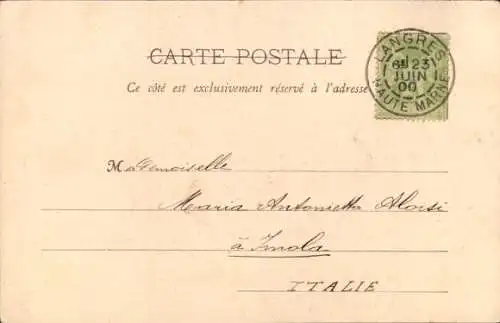 LANGRES
6E 23
JUIN
00
HAUTE MARNE
CARTE POSTALE
Ce côté est exclusivement réservé à l'adresse
Mademoiselle
Maria Antonietta Aloisi
à Imola
ITALIE